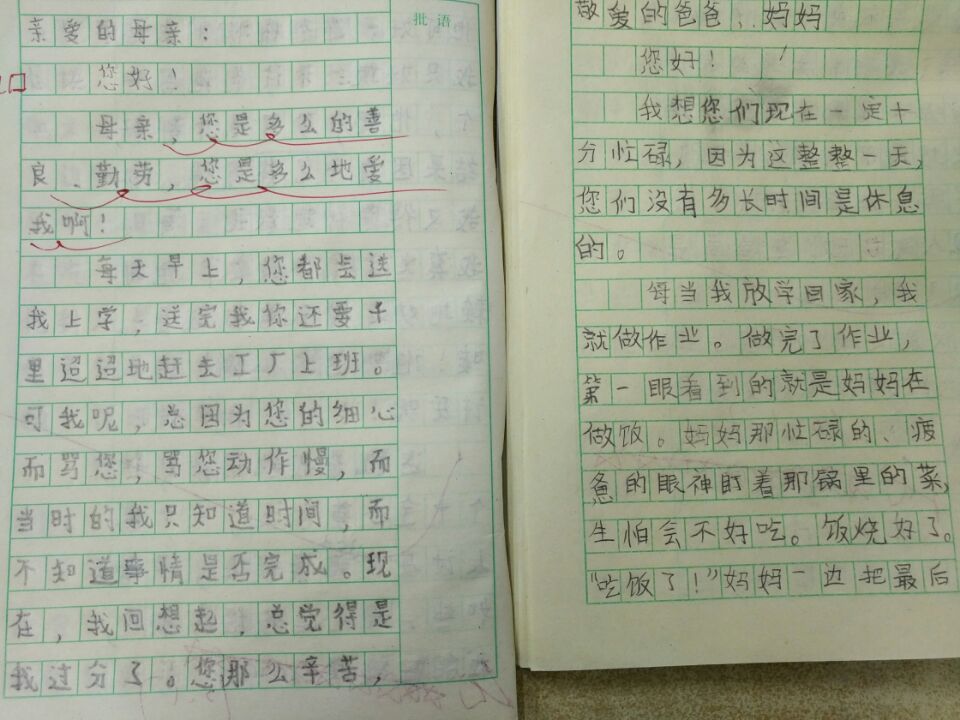 批语
亲爱的母亲：
您好！
母亲，您是多么的善
良、勤劳，您是多么地爱
我啊！
每天早上，您都去送
我上学，送完我你还要千
里迢迢地赶去工厂上班。
可我呢，总因为您的细心
而骂您，骂您动作慢，而
当时的我只知道时间，而
不知道事情是否完成。现
在，我回想起，总觉得是
我过分了。您那么辛苦，
敬爱的爸爸、妈妈
您好！
我想您们现在一定十
分忙碌，因为这整整一天，
您们没有多长时间是休息
的。
每当我放学回家，我
就做作业。做完了作业，
第一眼看到的就是妈妈在
做饭。妈妈那忙碌的、疲
惫的眼神盯着那锅里的菜，
生怕会不好吃。饭烧好了。
“吃饭了！”妈妈一边把最后